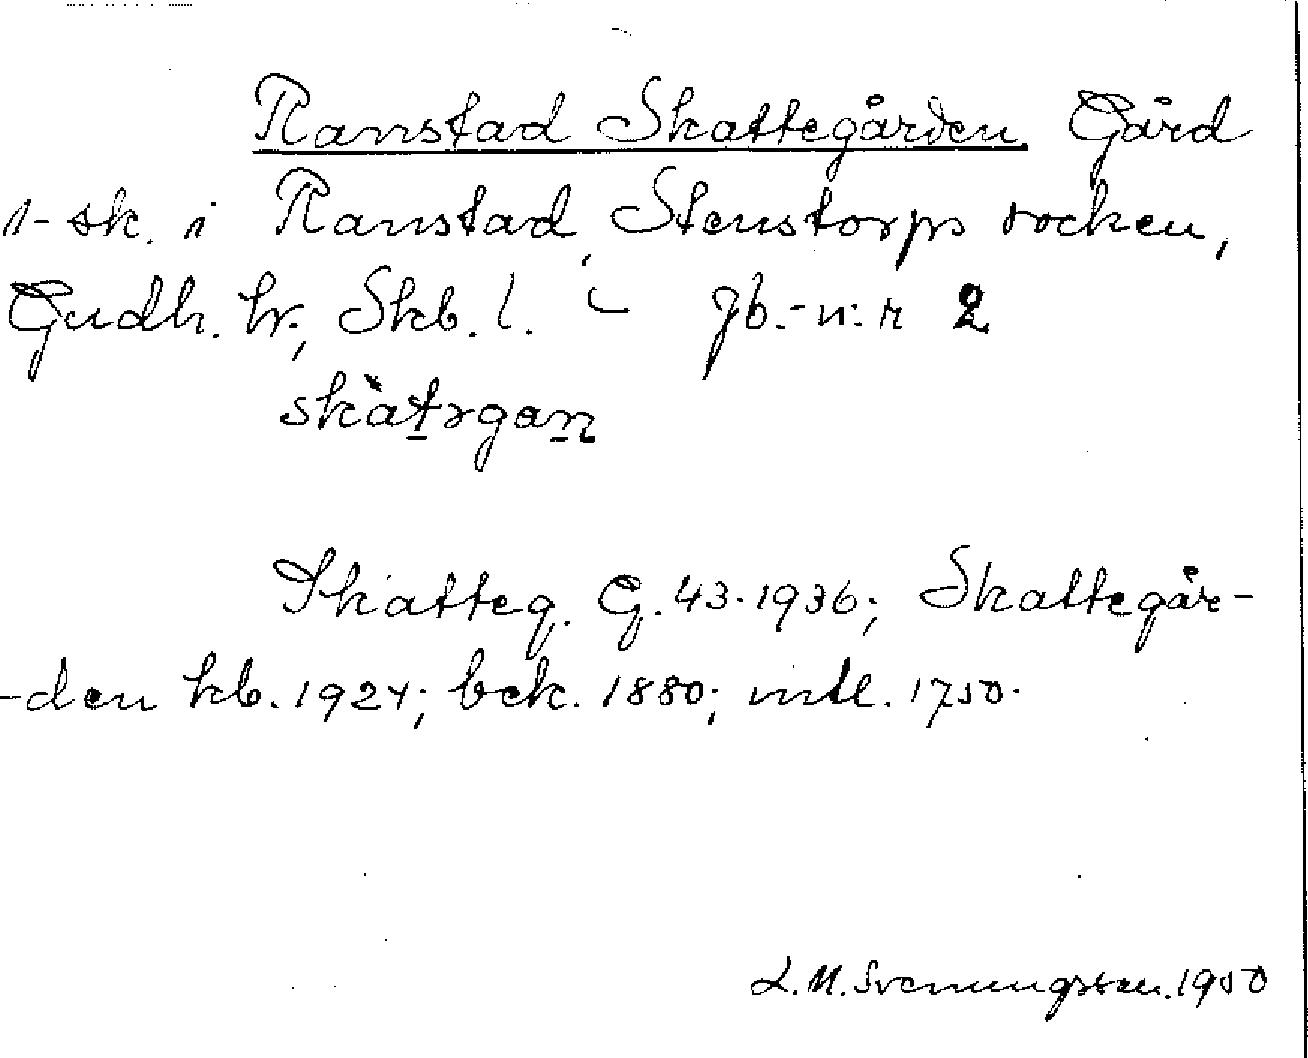 Ranstad Skattegården Gård
1-sk. i Ranstad, Stenstorps socken,
Gudh. hr, Skb. l. – jb.-n:r 2
skàtrgan
Skatteg. G. 43. 1936; Skattegår-
-den kb. 1924; bek. 1880; mtl. 1750.
L. M. Svenungsson. 1950